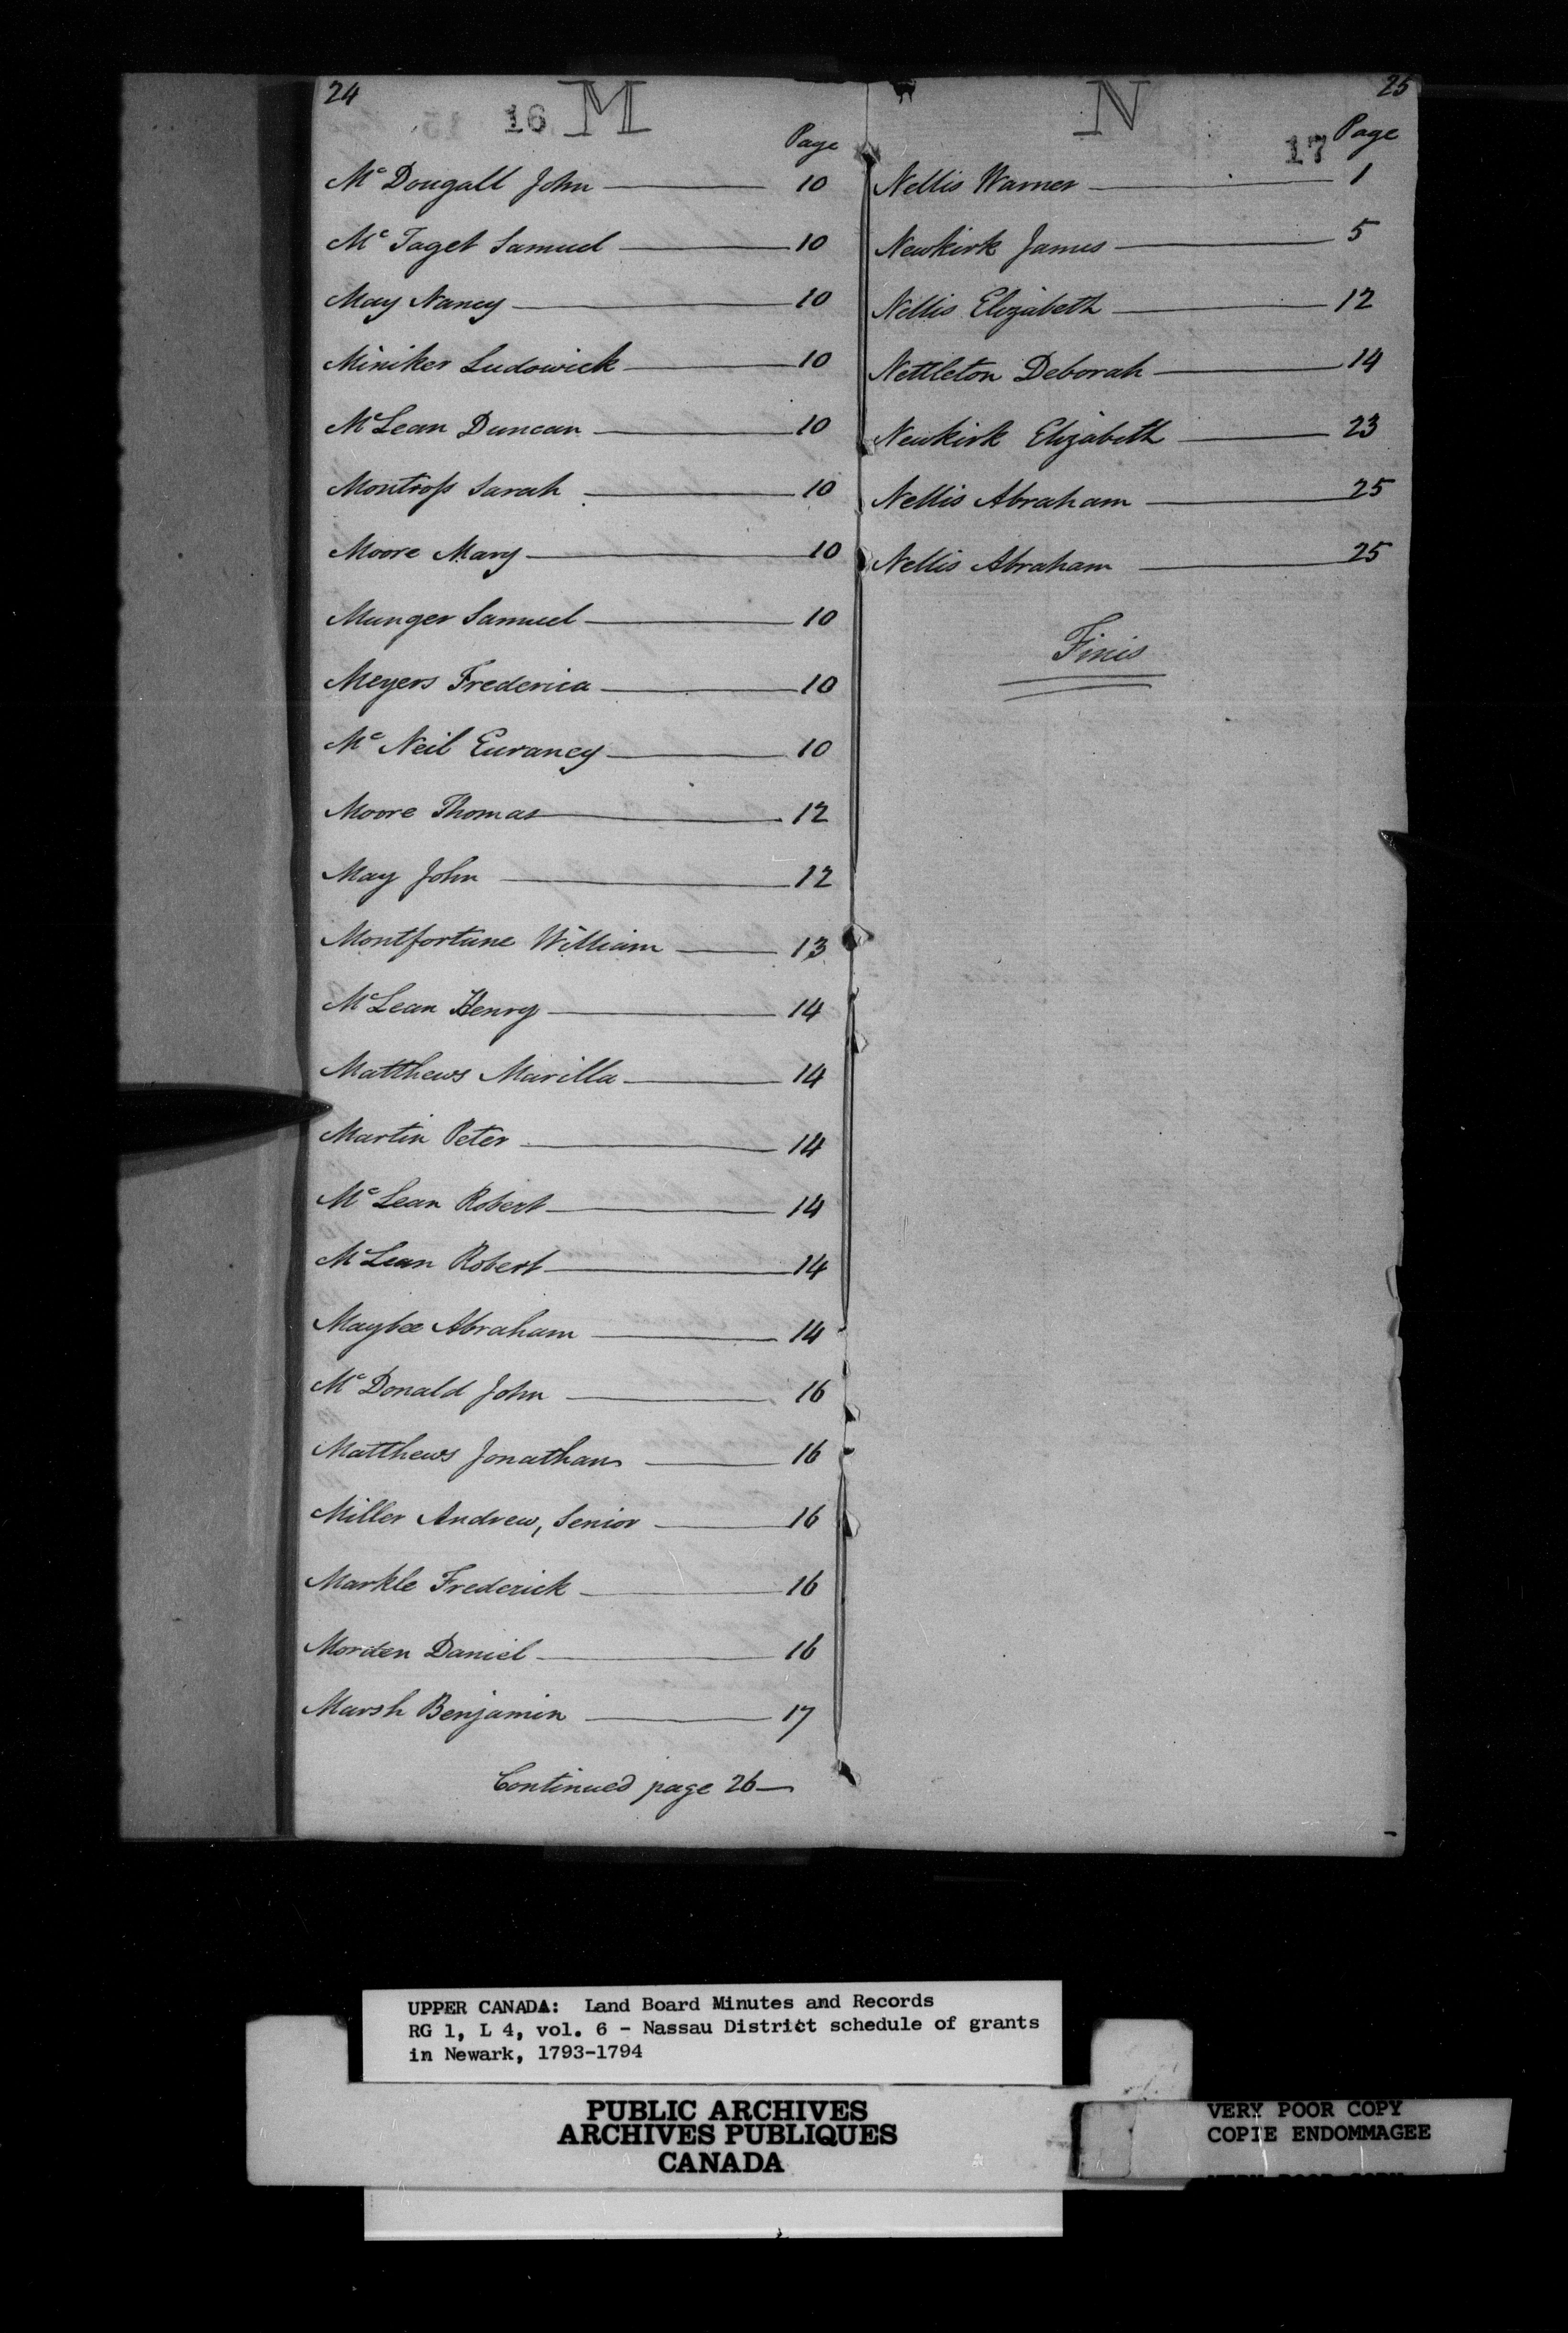 24
16 M
Page
Mc Dougall John 10
Mc Taget Samuel 10
May Nancy 10
Miniker Ludowick 10
McLean Duncan 10
Montross Sarah 10
Moore Mary 10
Munger Samuel 10
Meyers Frederica 10
Mc Neil Eurancy 10
Moore Thomas 12
May John 12
Montfortune William 13
McLean Henry 14
Matthews Marilla 14
Martin Peter 14
Mc Lean Robert 14
McLean Robert 14
Maybee Abraham 14
Mc Donald John 16
Matthews Jonathan 16
Miller Andrew, Senior 16
Markle Frederick 16
Morden Daniel 16
Marsh Benjamin 17
Continued page 26
N 25
17 Page
Nellis Warner 1
Newkirk James 5
Nellis Elizabeth 12
Nettleton Deborah 14
Newkirk Elizabeth 23
Nellis Abraham 25
Nellis Abraham 25
Finis
UPPER CANADA: Land Board Minutes and Records
RG 1, L 4, vol. 6 - Nassau District schedule of grants
in Newark, 1793-1794
PUBLIC ARCHIVES
ARCHIVES PUBLIQUES
CANADA
VERY POOR COPY
COPIE ENDOMMAGEE